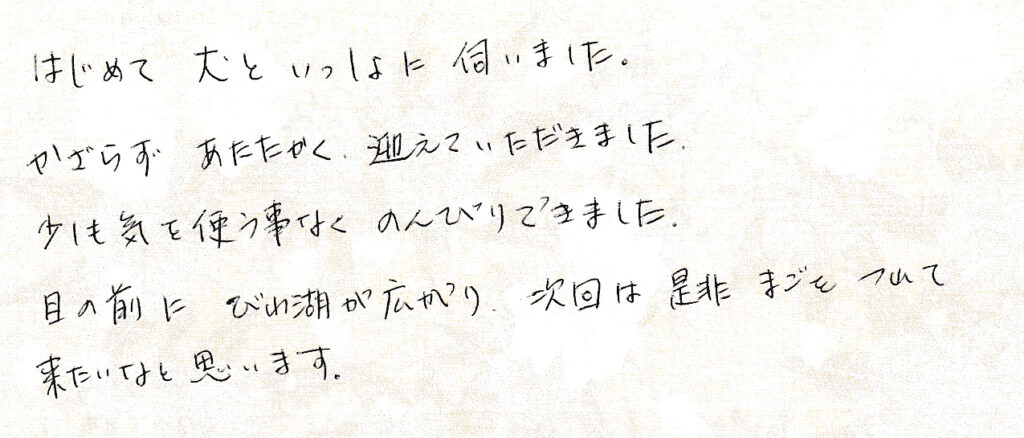 はじめて 犬と いっしょに 伺いました。
かざらず あたたかく、迎えていただきました。
少しも気を使う事なく のんびりできました。
目の前に びわ湖が広がり、次回は 是非 まごを つれて
来たいなと思います。